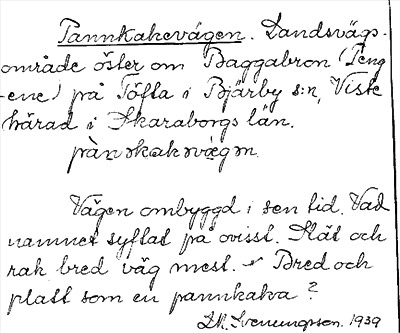 Pannkakevägen. Landsvägs-
område öster om Baggabron (Peng
-ene) på Töfta i Bjärby s:n, Viste
härad i Skaraborgs län.
pànskaksvægɷn
Vägen ombyggd i sen tid. Vad
namnet syftat på ovisst. Slät och
rak bred väg mest. Bred och
platt som en pannkaka?
Svenungsson. 1939